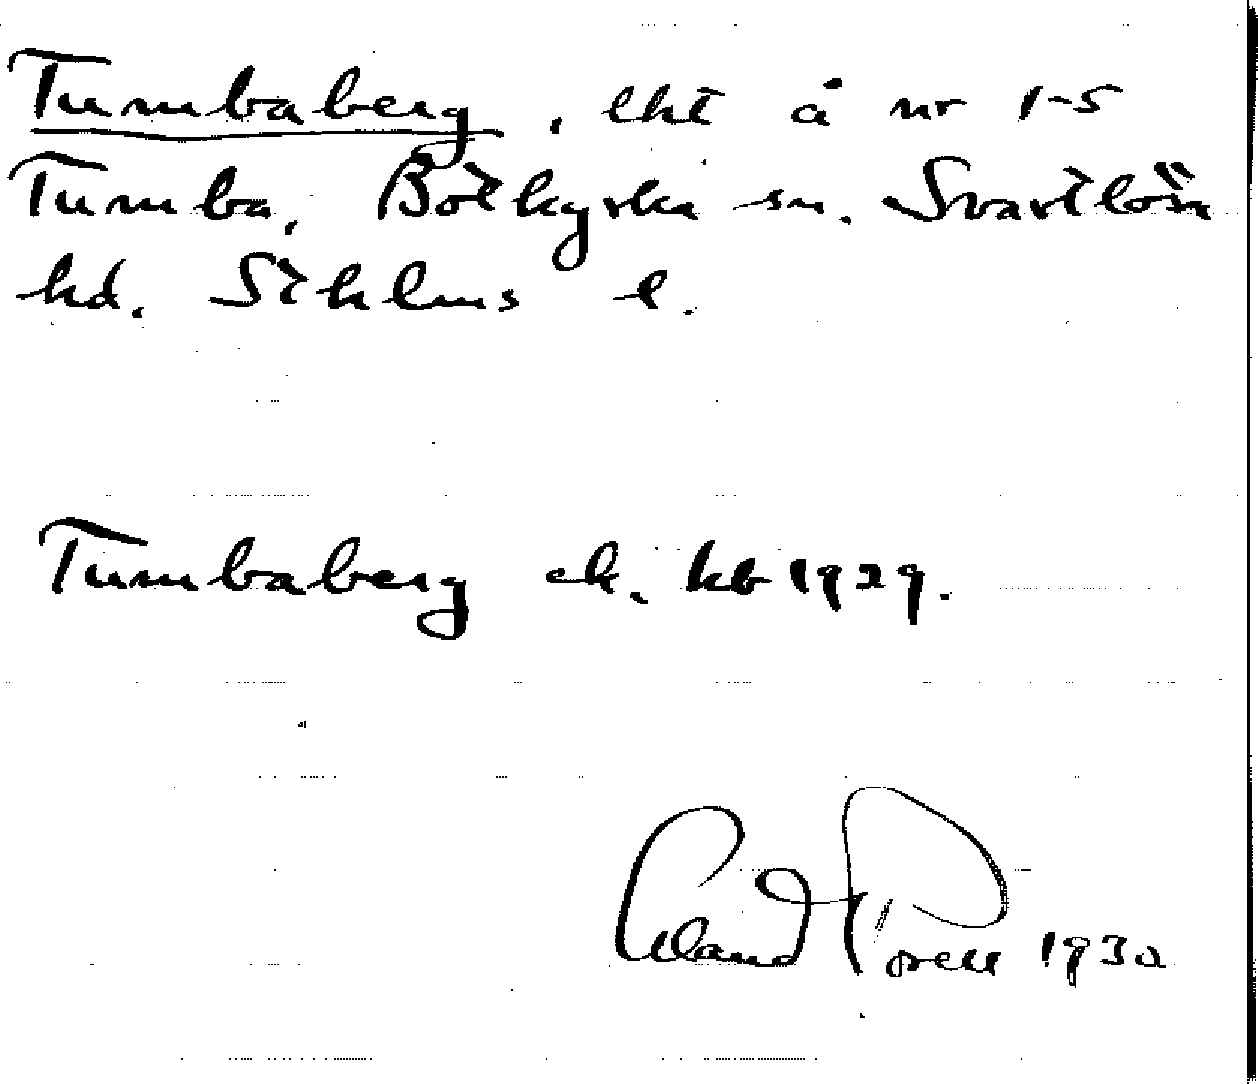 Tumbaberg, lht å nr 1-5
Tumba, Botkyrka sn. Svartlösa
hd. Sthlms l.
Tumbaberg ek. kb 1929.
1930